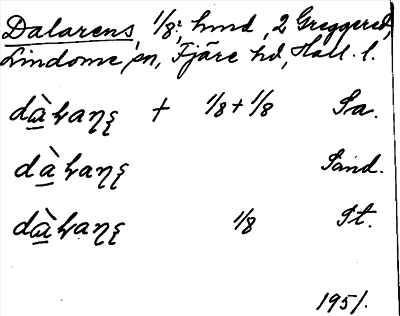 Dalarens, 1/8; hmd, 2 Greggered,
Lindome sn, Fjäre hd, Hall. l.
dàlaŋę + 1/8+1/8 Sa.
dàlaŋę Sand.
dàlaŋę 1/8 St.
1951.